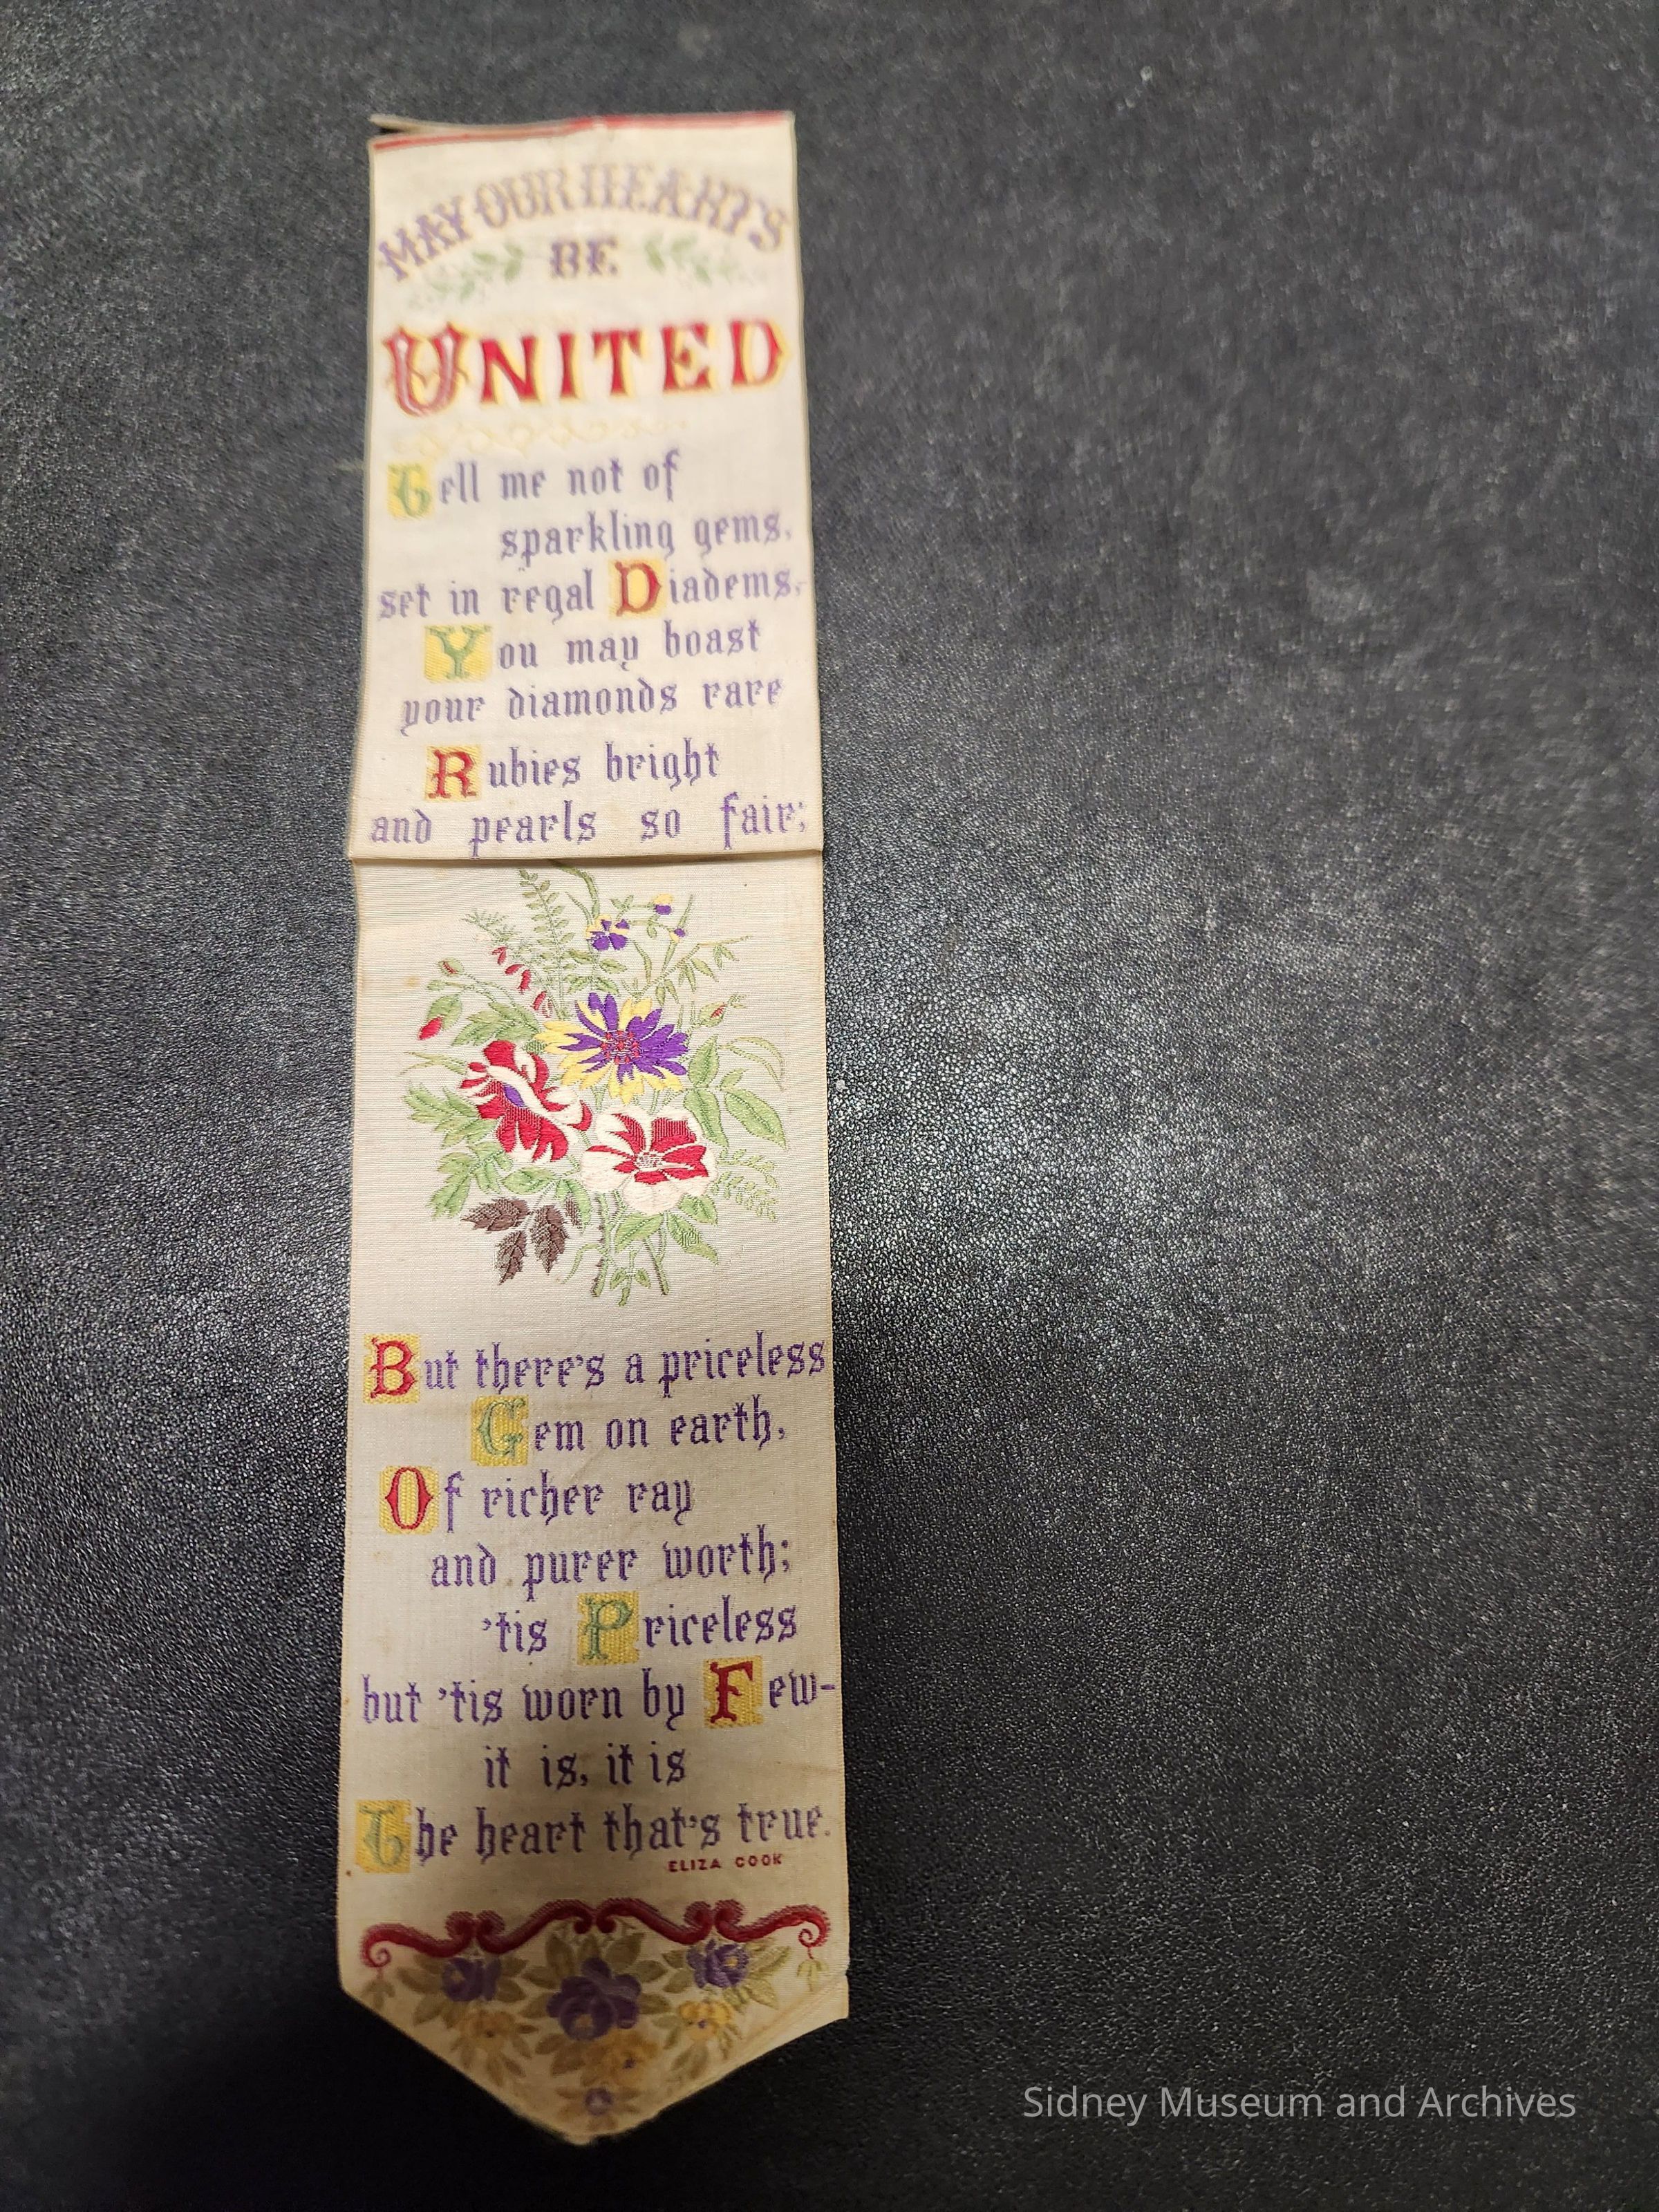 MAY OUR HEARTS
BE
UNITED
Tell me not of
sparkling gems,
set in regal Diadems,
You may boast
your diamonds rare
Rubies bright
and pearls so fair;
But there's a priceless
Gem on earth,
Of richer ray
and purer worth;
'tis Priceless
but 'tis worn by Few-
it is, it is
The heart that's true.
ELIZA COOK
Sidney Museum and Archives